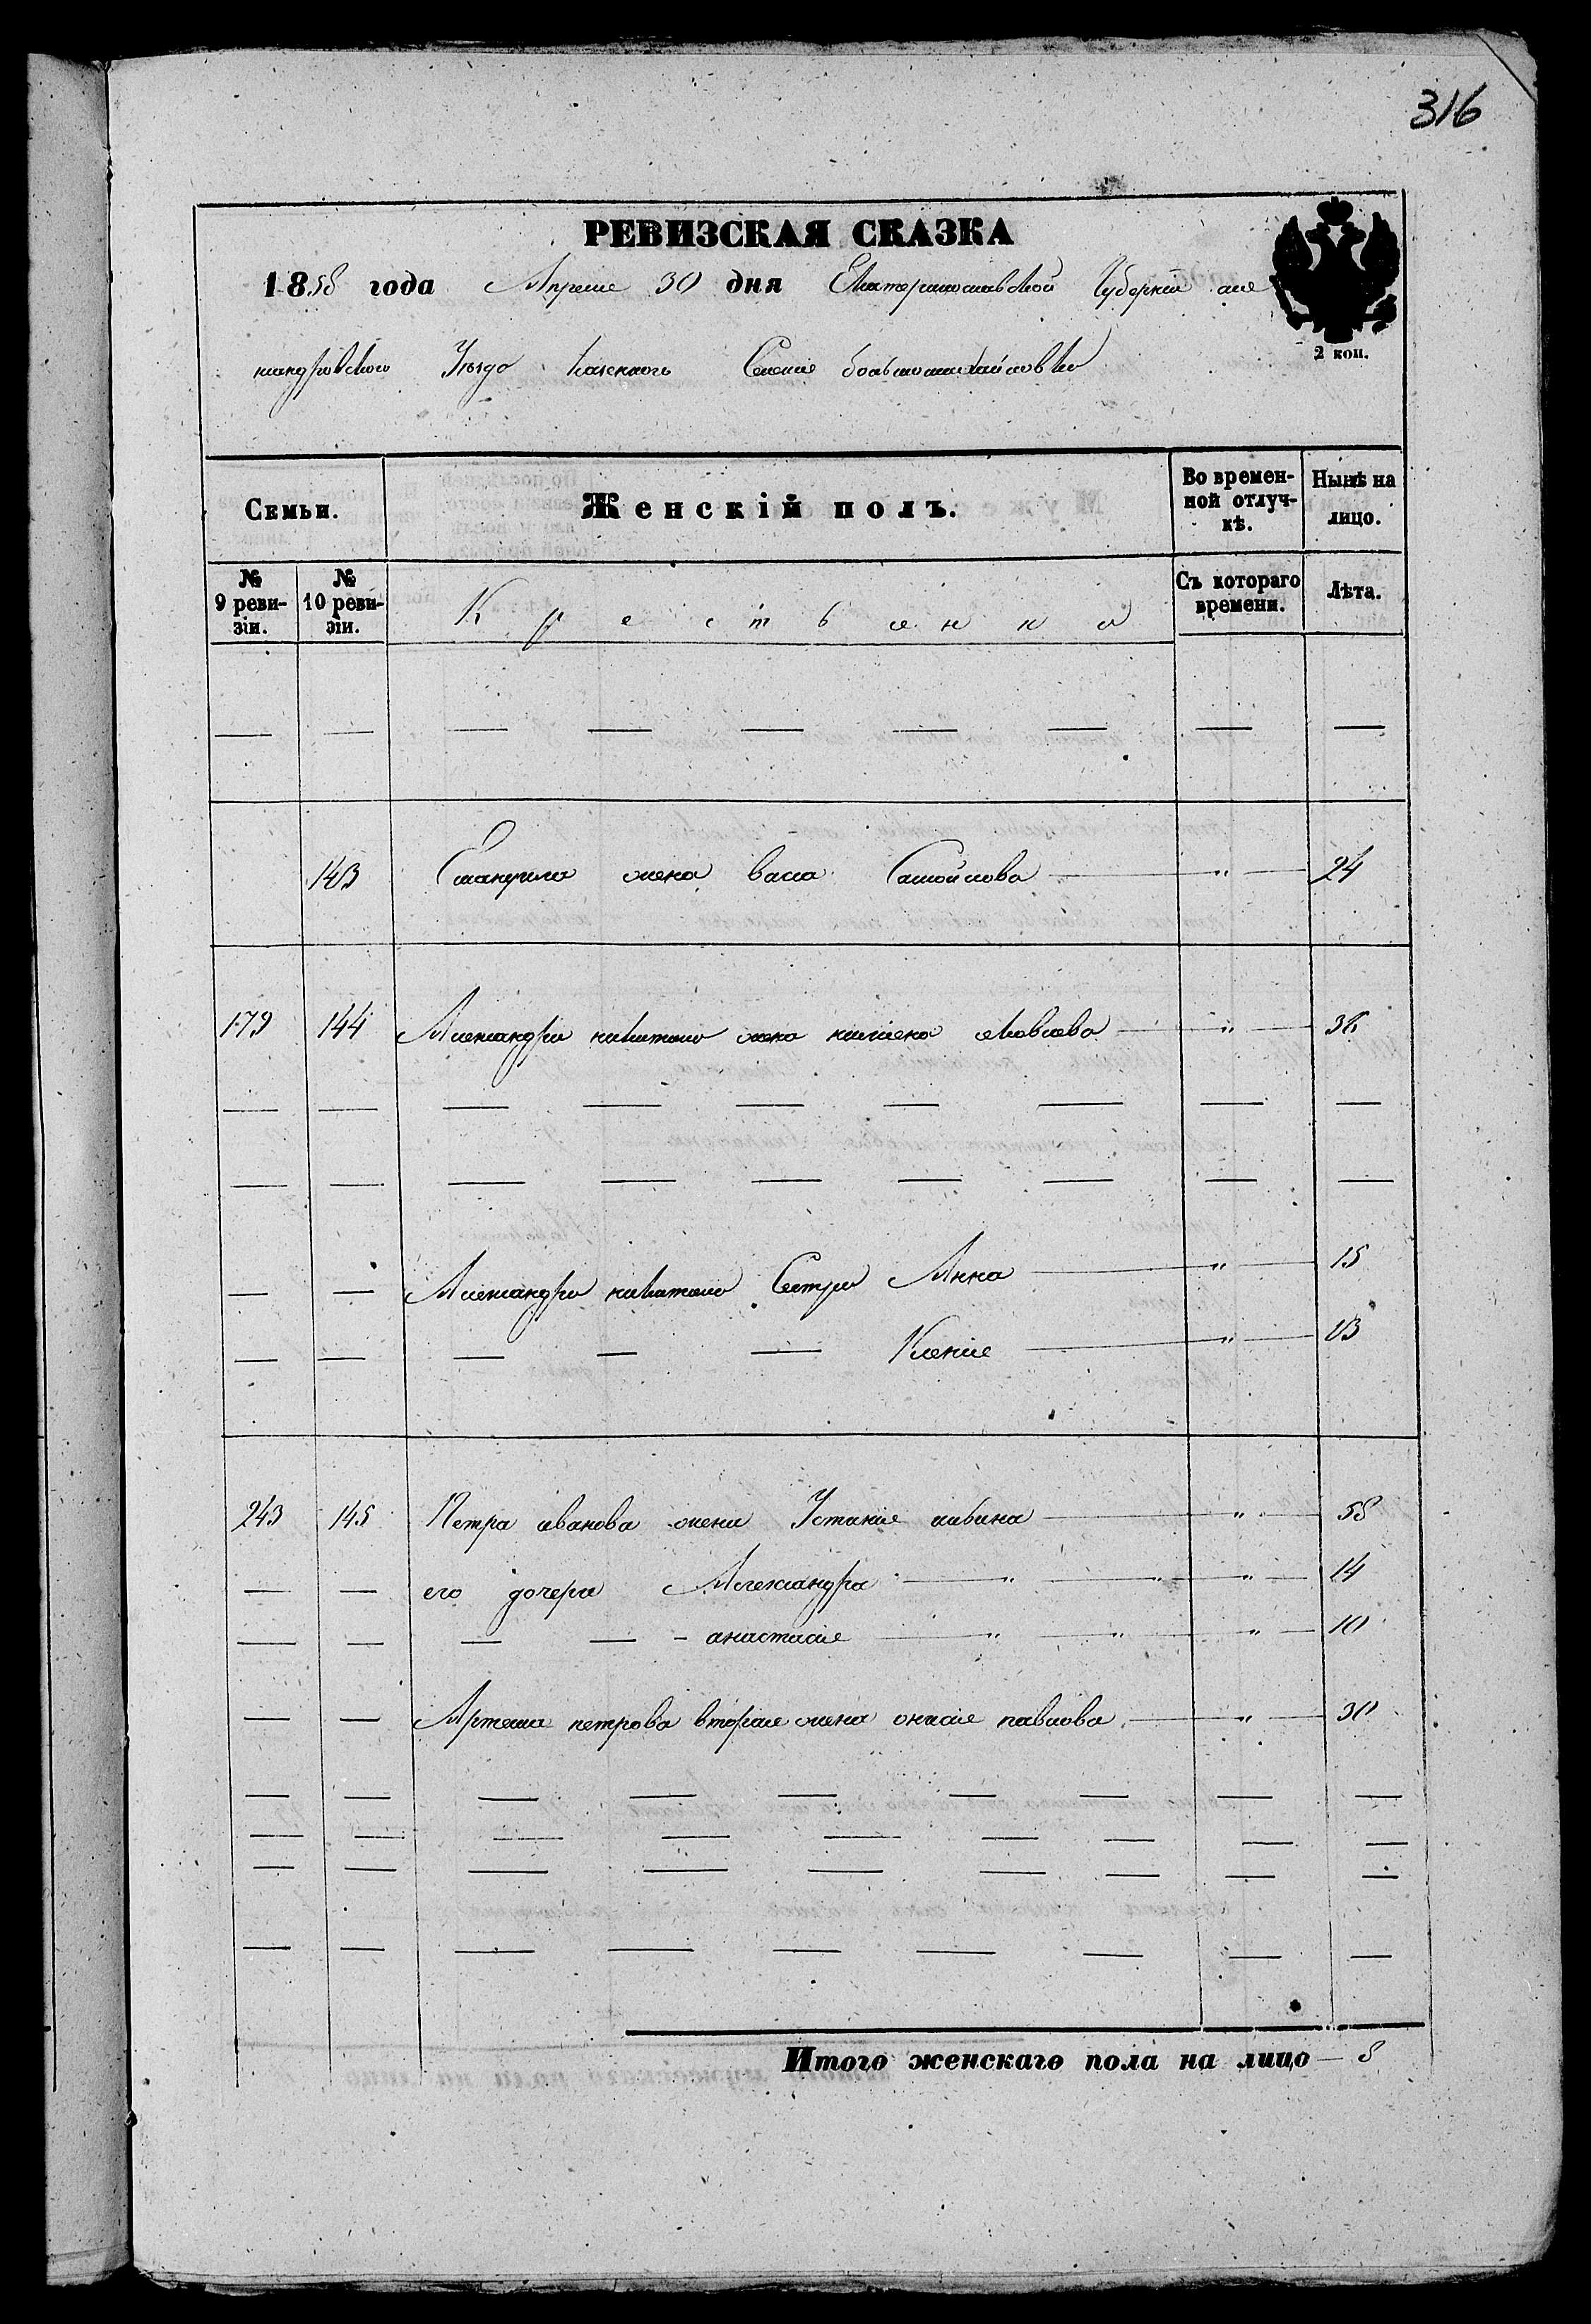 316
РЕВИЗСКАЯ СКАЗКА
1858 года Апреля 30 дня Екатеринославской Губернии але
ксандровского Уезда казенного Селения большомихайловки
2 коп.
Семьи.
Женскій полъ.
Во времен-
ной отлуч-
кѣ.
Нынѣ на
лицо.
№
9 реви-
зіи.
№
10 реви-
зіи.
Крестьянки
Съ котораго
времени.
Лѣта.
143 Емануила жена васа Самойлова " 24
179 144 Александра никитина жена яковлева " 36
Александра никитина Сестра Анна " 15
Ксения " 13
243 145 Петра иванова жена Устиния " 58
его дочери Александра " " " 14
анастасия " " " 10
Артема петрова вторая жена павлова " 30
Итого женскаго пола на лицо 8